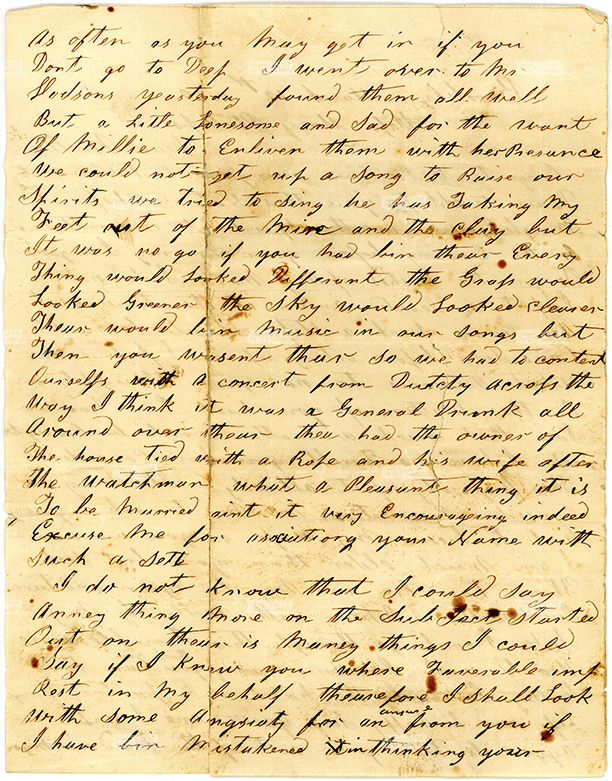 As often as you May get in if you
Dont go to Deep I went over to Mr
Hodsons yeasterday found them all well
But a Little Lonesome and Sad for the want
Of Millie to Enliven them with her Presance
We could not get up a Song to Raise our
Spirits we tried to Sing he has Taking My
Feet out of the Mire and the Clay but
It was no go if you had bin thear Every
Thing would Looked Different the Grass would
Looked Greener the Sky would Looked Clearer
Thear would bin Music in our Songs but
Then you wasent thar so we had to content
Ourselfs with a concert from Dutchy across the
Way I think it was a General Drunk all
Around over thear thea had the owner of
The house tied with a Rope and his wife after
The Watchman what a Pleasant thing it is
To be Married aint it very Encourageing indeed
Excuse Me for asociationg your Name with
Such a Sett
I do not Know that I could Say
Anney thing More on the Subject Started
Out on thear is Maney things I could
Say if I Knew you where Faverable imp
Rest in My behalf thearefore I Shall Look
With Some Angsiaty for an answer from you if
I have bin Mistakened in thinking your